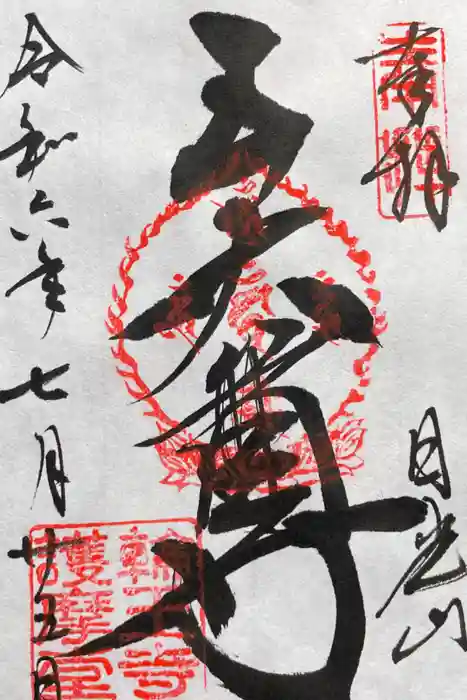 奉拝
日光山
五大尊
輪王寺
護摩堂
令和六年七月廿五日